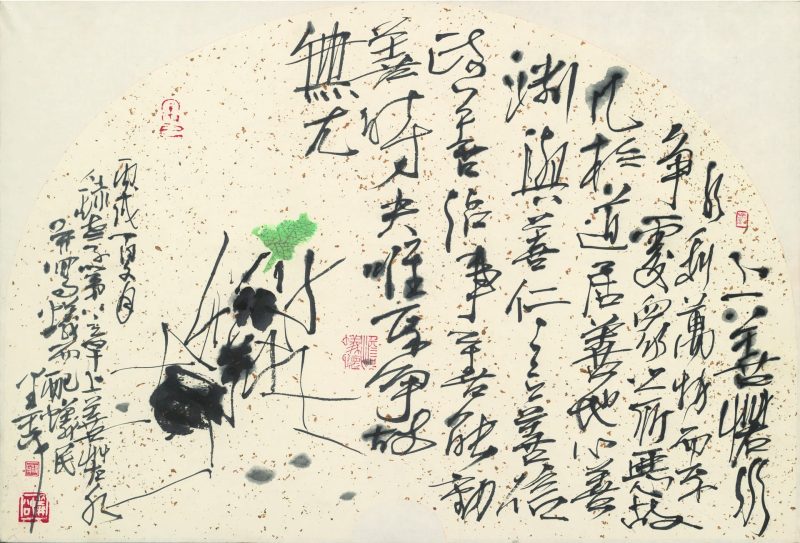 上善若水
水利萬物而不
爭處眾之所惡故
几於道居善地心善
淵與善仁言善信
政善治事善能動
善時夫唯不爭故
無尤
丙戌 月
錄老子第八章上善若水
并寫 而配